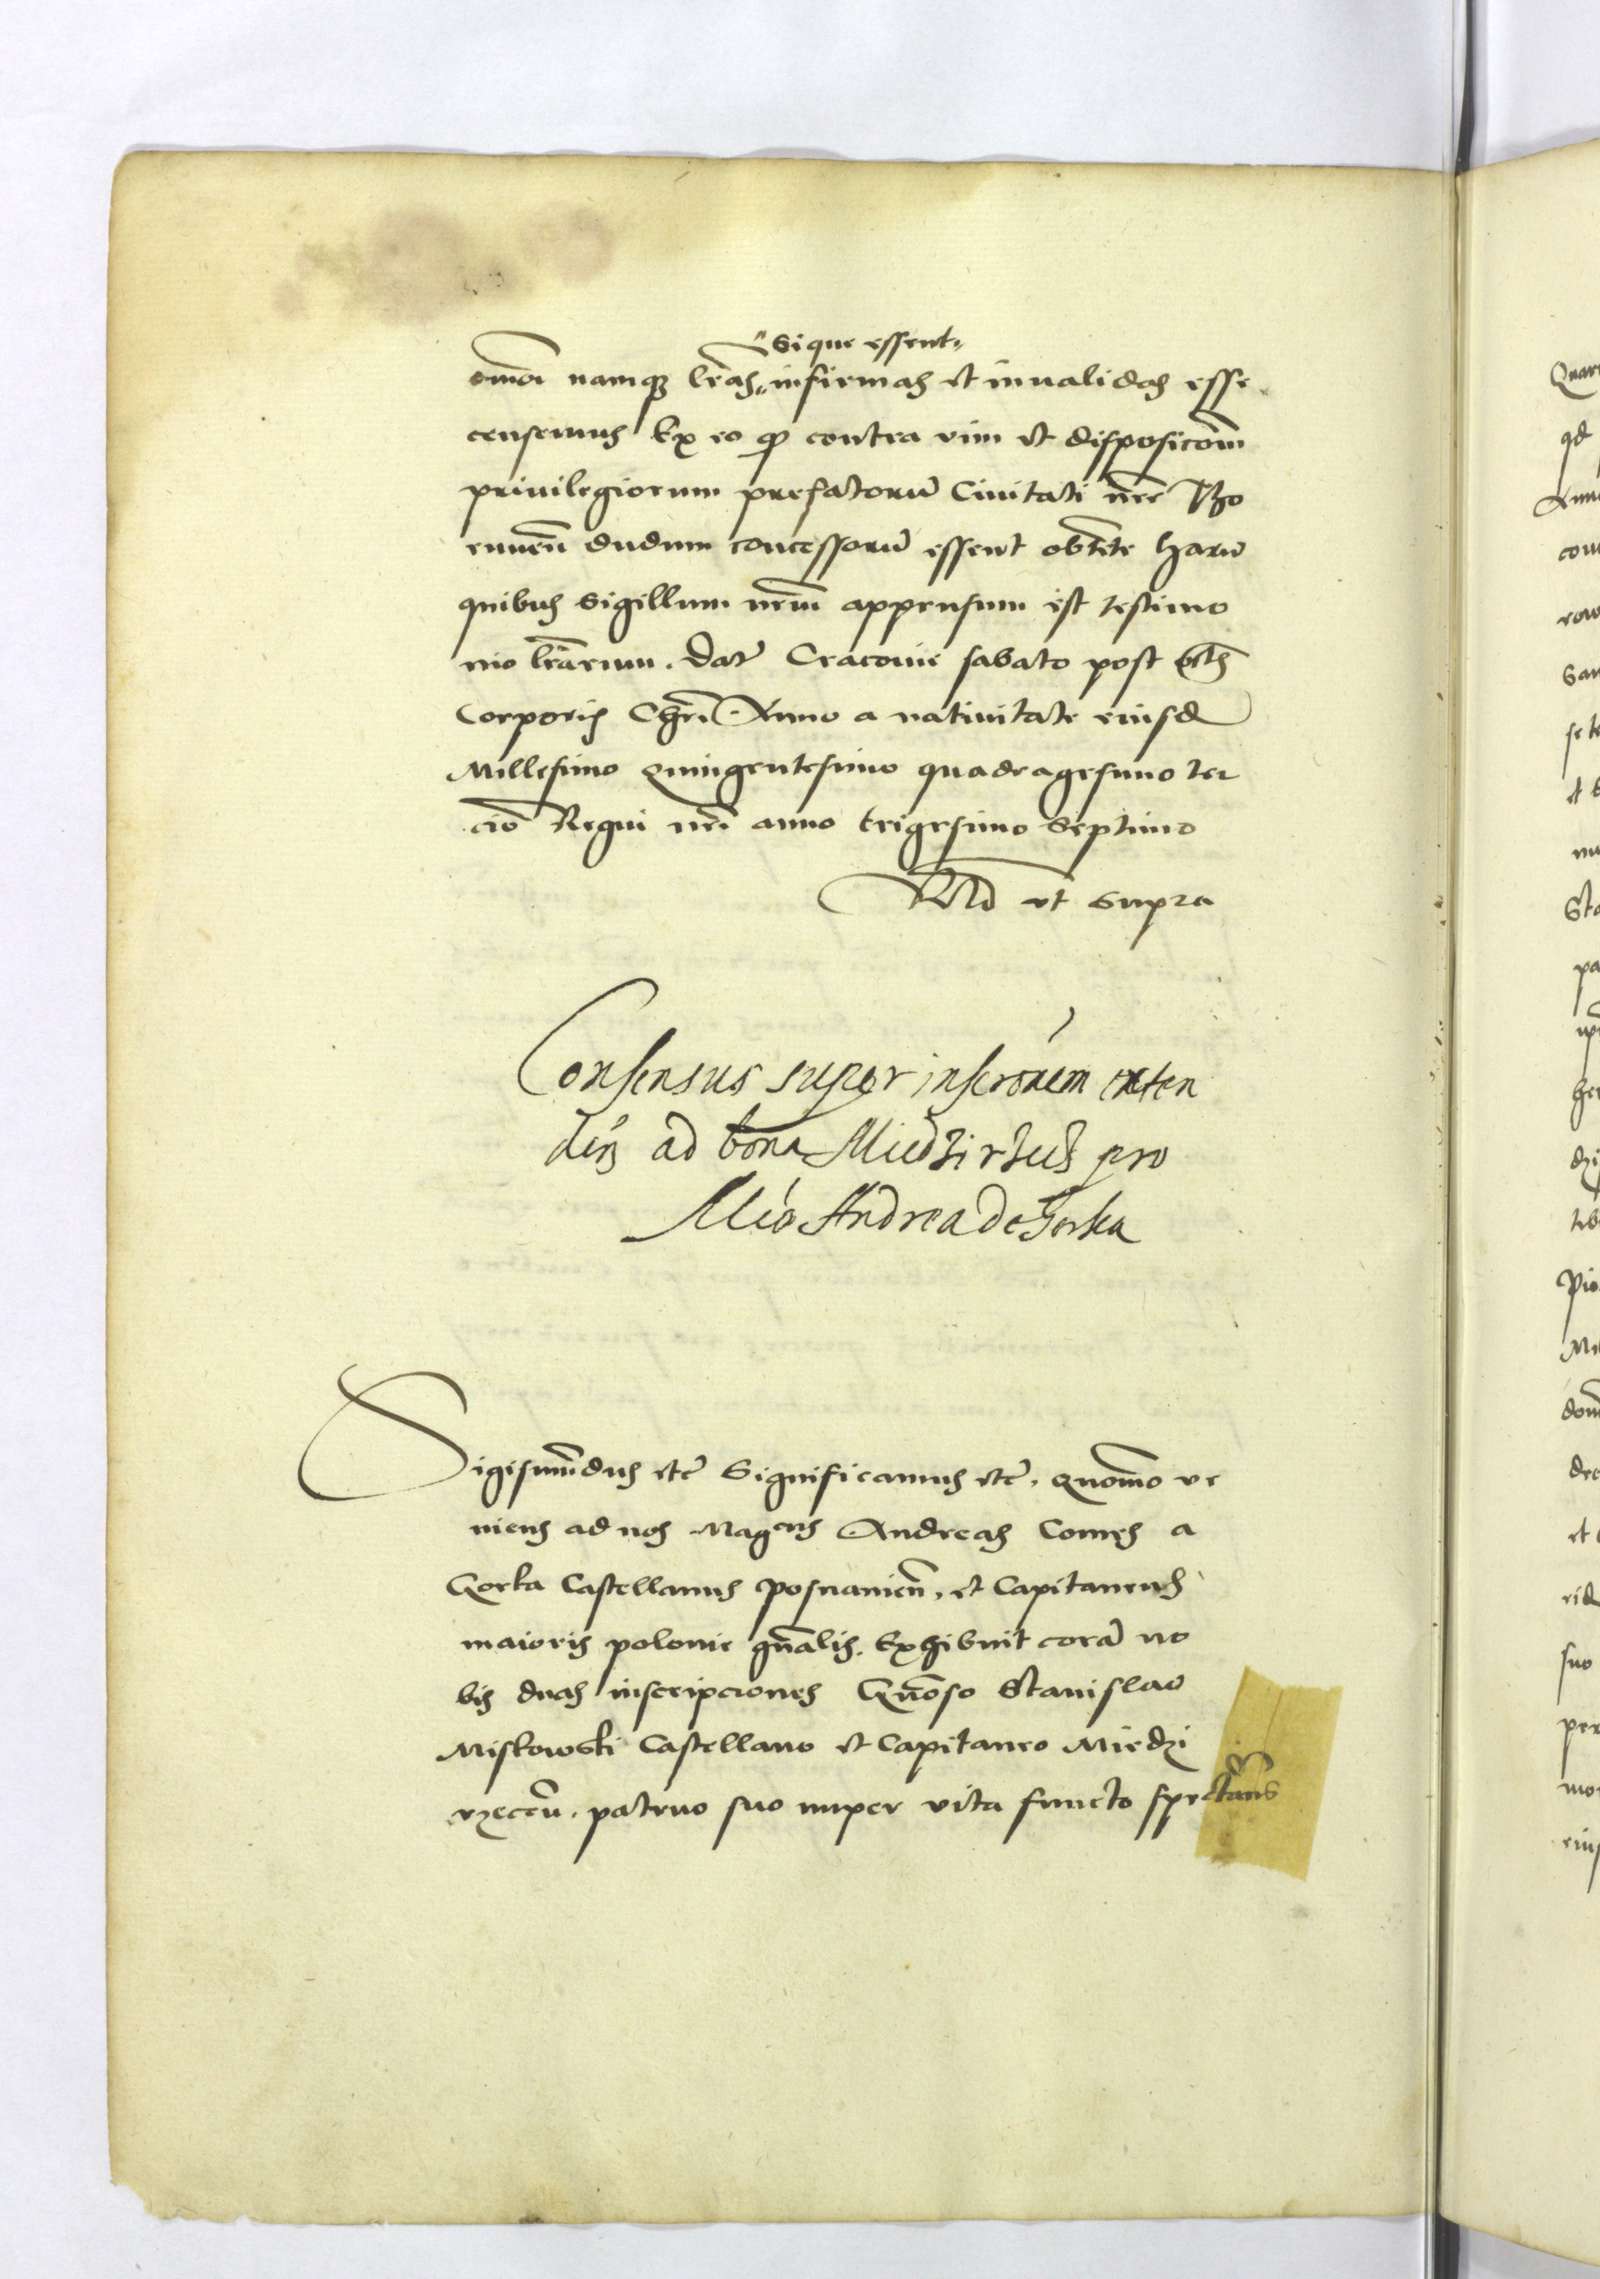 Sique essent
omnes namque lras infirmas et inualidas esse
censemus Ex eo quod contra vim et disposicom
priuilegiorum prefatoru Ciuitati nre Tho
runien dudum concessoru essent obtente haru
quibus Sigillum nrm appensum est testimo
nio lrarum. Dat Cracouie sabato post octs
Corporis Chri Anno a natiuitate eiusd
Millesimo Quingentesimo quadragesimo ter
cio Regni nri anno trigesimo Septimo
Rlo ut supra
Consensus super inscronem exten
den ad bona Miedzirzecz pro
Mco Andrea de Gorka
Sigismundus etc Significamus etc. Quomo ve
niens ad nos Magcus Andreas Comes a
Gorka Castellanus Posnanien. et Capitaneus
maioris polonie gnalis. Exhibuit cora no
bis duas inscripciones Gnoso Stanislao
Miskowski Castellano et Capitaneo Miedzi
rzecen. patruo suo nuper vita functo
Quar
qd
Anno
com
row
San
se te
nu
Sta
pa
Pio
dom
dec
suo
per
mor
eius